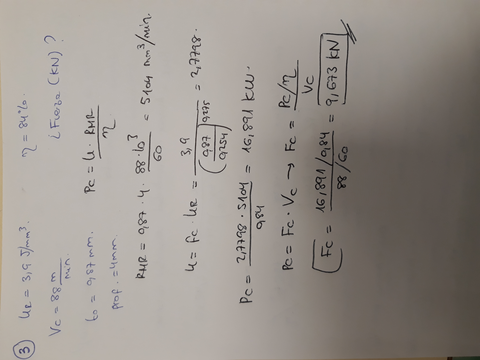 3 UR = 3,9 J/mm³. η = 84%.
Vc = 88 m/min ¿Fuerza (KN)?
to = 0,87 mm. Pc = U · RMR/η
prof. = 4mm.
RMR = 0,87 · 4 · 88·10³/60 = 5104 mm³/min.
U = Fc · UR = 3,9/(0,87/0,254)^0,275 = 2,7798.
Pc = 2,7798 · 5104/0,84 = 16,891 KW.
Pc = Fc · Vc → Fc = Pc/η/Vc
Fc = 16,891/0,84/88/60 = 9,673 KN